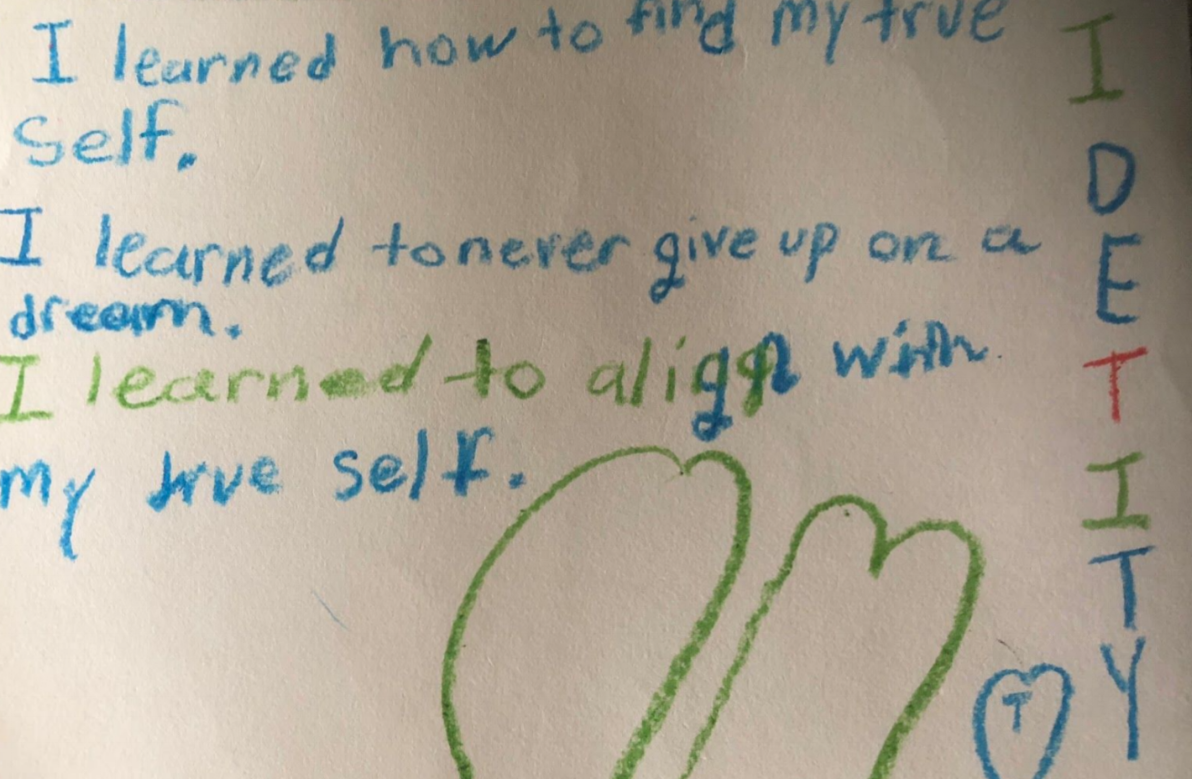 I learned how to find my true
self.
I learned to never give up on a
dream.
I learned to align with
my true self.
I
D
E
T
I
T
Y
T